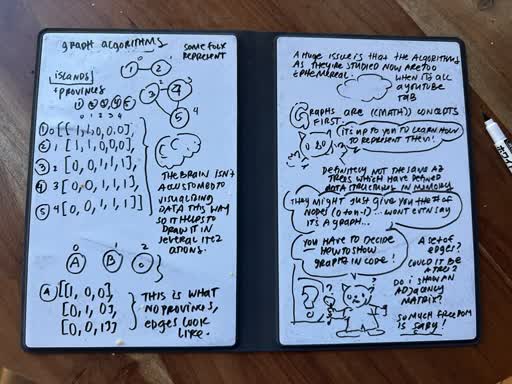 graph algorithms
some folx
represent
islands
+ provinces
0
1 2
1 2 3 4 5
0 1 2 3 4
1 0 [[1,1,0,0,0],
2 1 [1,1,0,0,0],
3 2 [0,0,1,1,1],
4 3 [0,0,1,1,1],
5 4 [0,0,1,1,1]]
2 3
3 4
5 4
THE BRAIN ISN'T
ACCUSTOMED TO
VISUALIZING
DATA THIS WAY
SO IT HELPS TO
DRAW IT IN
SEVERAL ITER
ATIONS.
0 1 2
A B C
[[1,0,0],
[0,1,0],
[0,0,1]]
THIS IS WHAT
NO PROVINCES,
EDGES LOOK
LIKE.
A HUGE ISSUE IS THAT THE ALGORITHMS
AS THEY'RE STUDIED NOW ARE TOO
EPHEMERAL.
WHEN IT'S ALL
A YOUTUBE
TAB
GRAPHS ARE ((MATH)) CONCEPTS
FIRST.
IT'S UP TO YOU TO LEARN HOW
TO REPRESENT THEM!
DEFINITELY NOT THE SAME AS
TREES WHICH HAVE DEFINED
DATA STRUCTURE IN MEMORY
THEY MIGHT JUST GIVE YOU THE # OF
NODES (0 to n-1)... WON'T EVEN SAY
IT'S A GRAPH...
YOU HAVE TO DECIDE
HOW TO SHOW
GRAPHS IN CODE!
A SET OF
EDGES?
COULD IT BE
A TREE?
DO I SHOW AN
ADJACENCY
MATRIX?
SO MUCH FREEDOM
IS SCARY!